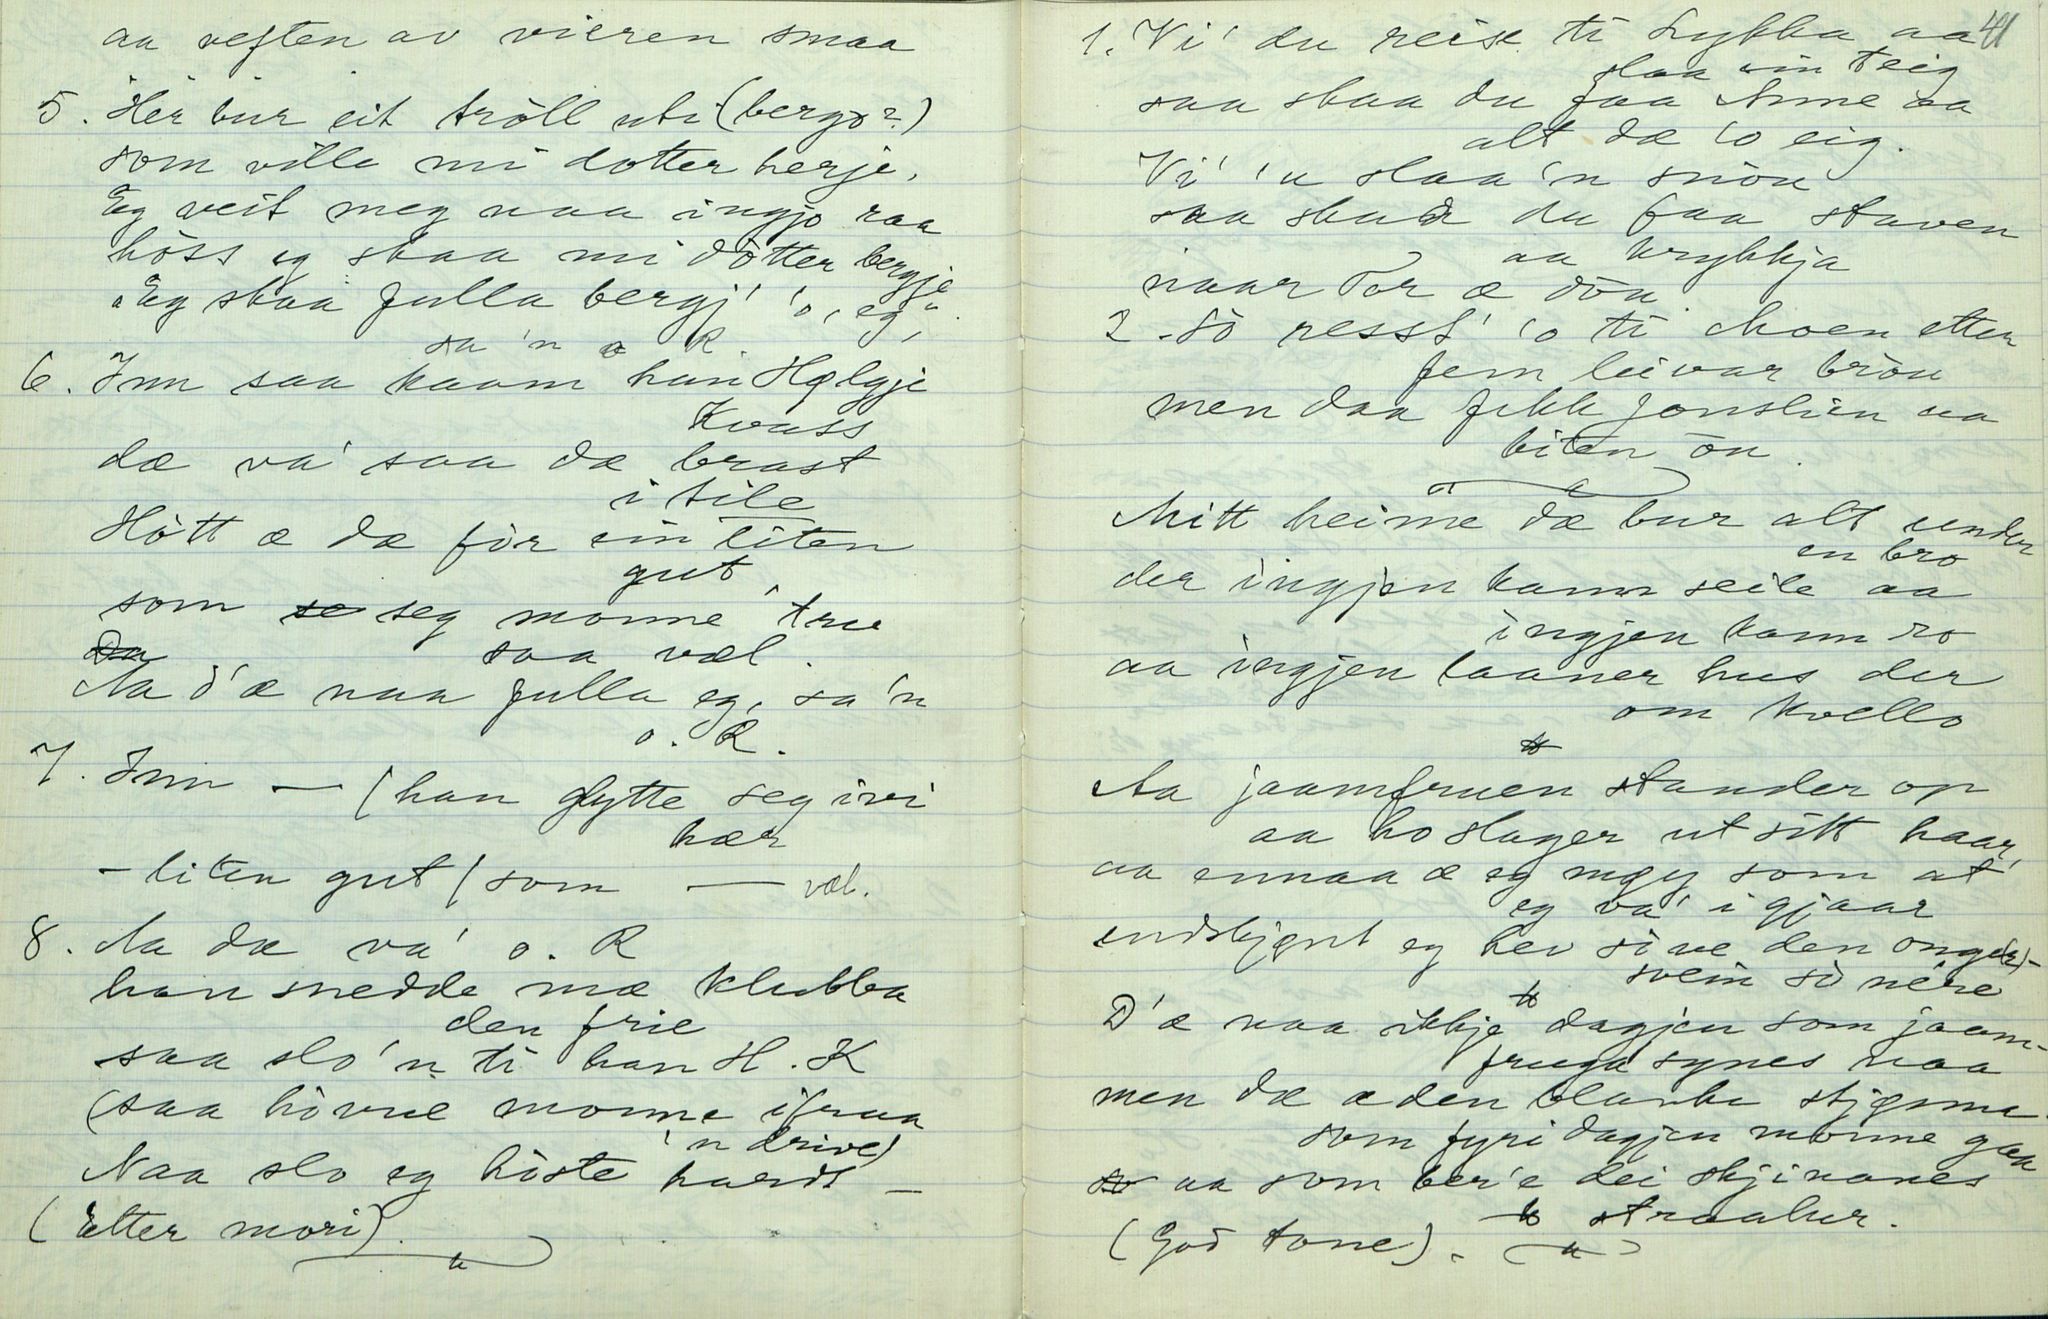 aa veften av vieren smaa
5. Her bur eit tröll uti (bergo?)
som ville mi dotter herje,
Eg veit meg naa ingjo raa
höss eg skaa mi dòtter bergje
"Eg skaa fulla bergj' 'o, eg,"
sa 'n o R.
6. Inn saa kaam han Hølgje
Kvass
dæ va' saa dæ brast
i tile
Hòtt æ dæ fòr ein liten
gut
som seg monne true
saa væl.
Aa d'æ naa fulla eg, sa'n
o. R.
7. Inn — (han flytte seg ivi
hær
- liten gut / som — væl.
8. Aa dæ va' o. R
han snedde mæ klubba
den frie
saa slo'n ti han H. K
(saa hòvue monne ifraa
'n drive)
Naa slo eg histe hardt —
(Etter mori).
41
1. Vi' du reise ti Lykkja aa
slaa ein teig
saa skaa du faa Anne aa
alt dæ 'o eig.
Vi' 'u slaa 'n snöu
saa skaa du faa staven
aa krykkja
naar Tor æ döu
2. Sò resst' 'o ti Moen etter
fem leivar bröu
men daa fikk Jonslien aa
biten öu.
Mitt heime dæ bur alt under
en bro
der ingjen kann seile aa
ingjen kann ro
aa ingjen laaner hus der
om kvello
Aa jaamfruen stander op
aa ho slager ut sitt haar,
aa ennaa æ eg møy som at
eg va' i gjaar
endskjønt eg hev sòve den onge(r)-
svein sò nére
D'æ naa ikkje dagjen som jaam-
fruga synes naa
men dæ æ den blanke stjønne
som fyri dagjen monne gaa
aa som ber'e dei skjinanes
straaler.
(God tone).